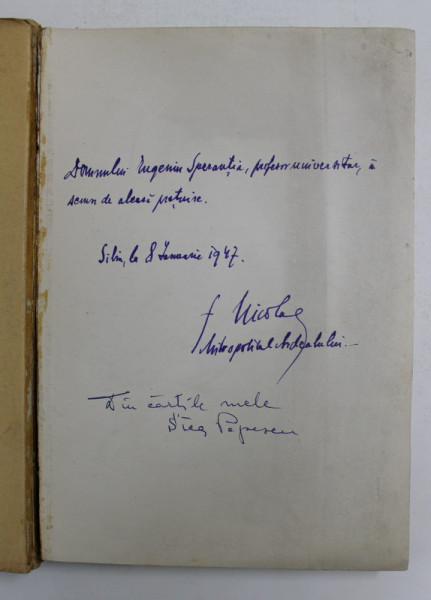 Domnului Eugeniu Speranția, profesor universitar, în
semn de aleasă prețuire.
Sibiu, la 8 Ianuarie 1947.
† Nicolae
Mitropolitul Ardealului.
Din cărțile mele
Popescu